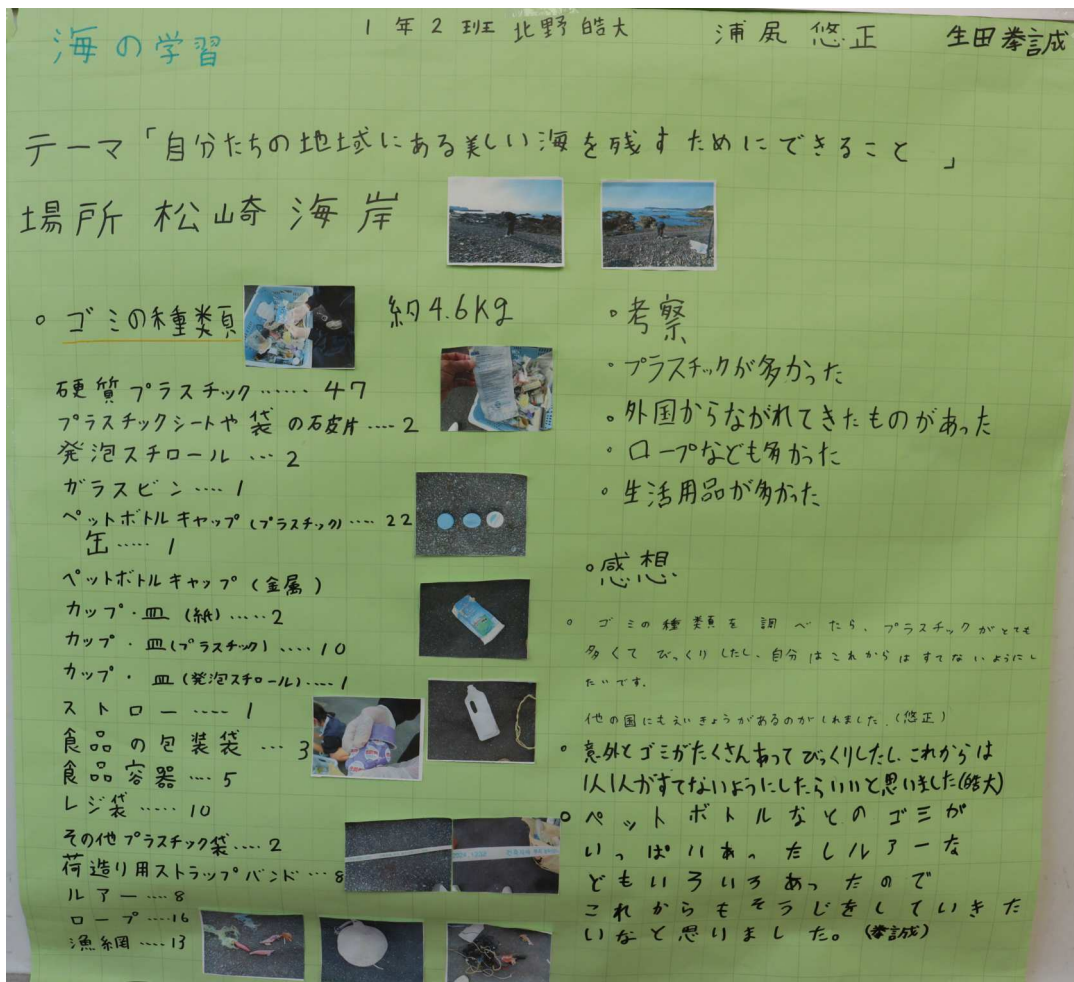 海の学習
1年2班 北野皓大 浦尻悠正 生田拳誠
テーマ「自分たちの地域にある美しい海を残すためにできること」
場所 松崎海岸
。ゴミの種類 約4.6kg
硬質プラスチック……47
プラスチックシートや袋の破片....2
発泡スチロール…2
ガラスビン....1
ペットボトルキャップ(プラスチック)....22
缶.....1
ペットボトルキャップ(金属)
カップ・皿(紙).....2
カップ・皿(プラスチック)....10
カップ・皿(発泡スチロール)....1
ストロー----1
食品の包装袋…3
食品容器....5
レジ袋.....10
その他プラスチック袋....2
荷造り用ストラップバンド…8
ルアー....8
ロープ....16
漁網.....13
・考察
・プラスチックが多かった
。外国からながれてきたものがあった
・ロープなども多かった
・生活用品が多かった
。感想
。ゴミの種類を調べたら、プラスチックがとても
多くてびっくりしたし、自分はこれからはすてないようにし
たいです。
他の国にもえいきょうがあるのがしれました.(悠正)
。意外とゴミがたくさんあってびっくりしたし、これからは
1人1人がすてないようにしたらいいと思いました(皓大)
。ペットボトルなどのゴミが
いっぱいあったしルアーな
どもいろいろあったので
これからもそうじをしていきた
いなと思いました。(拳誠)